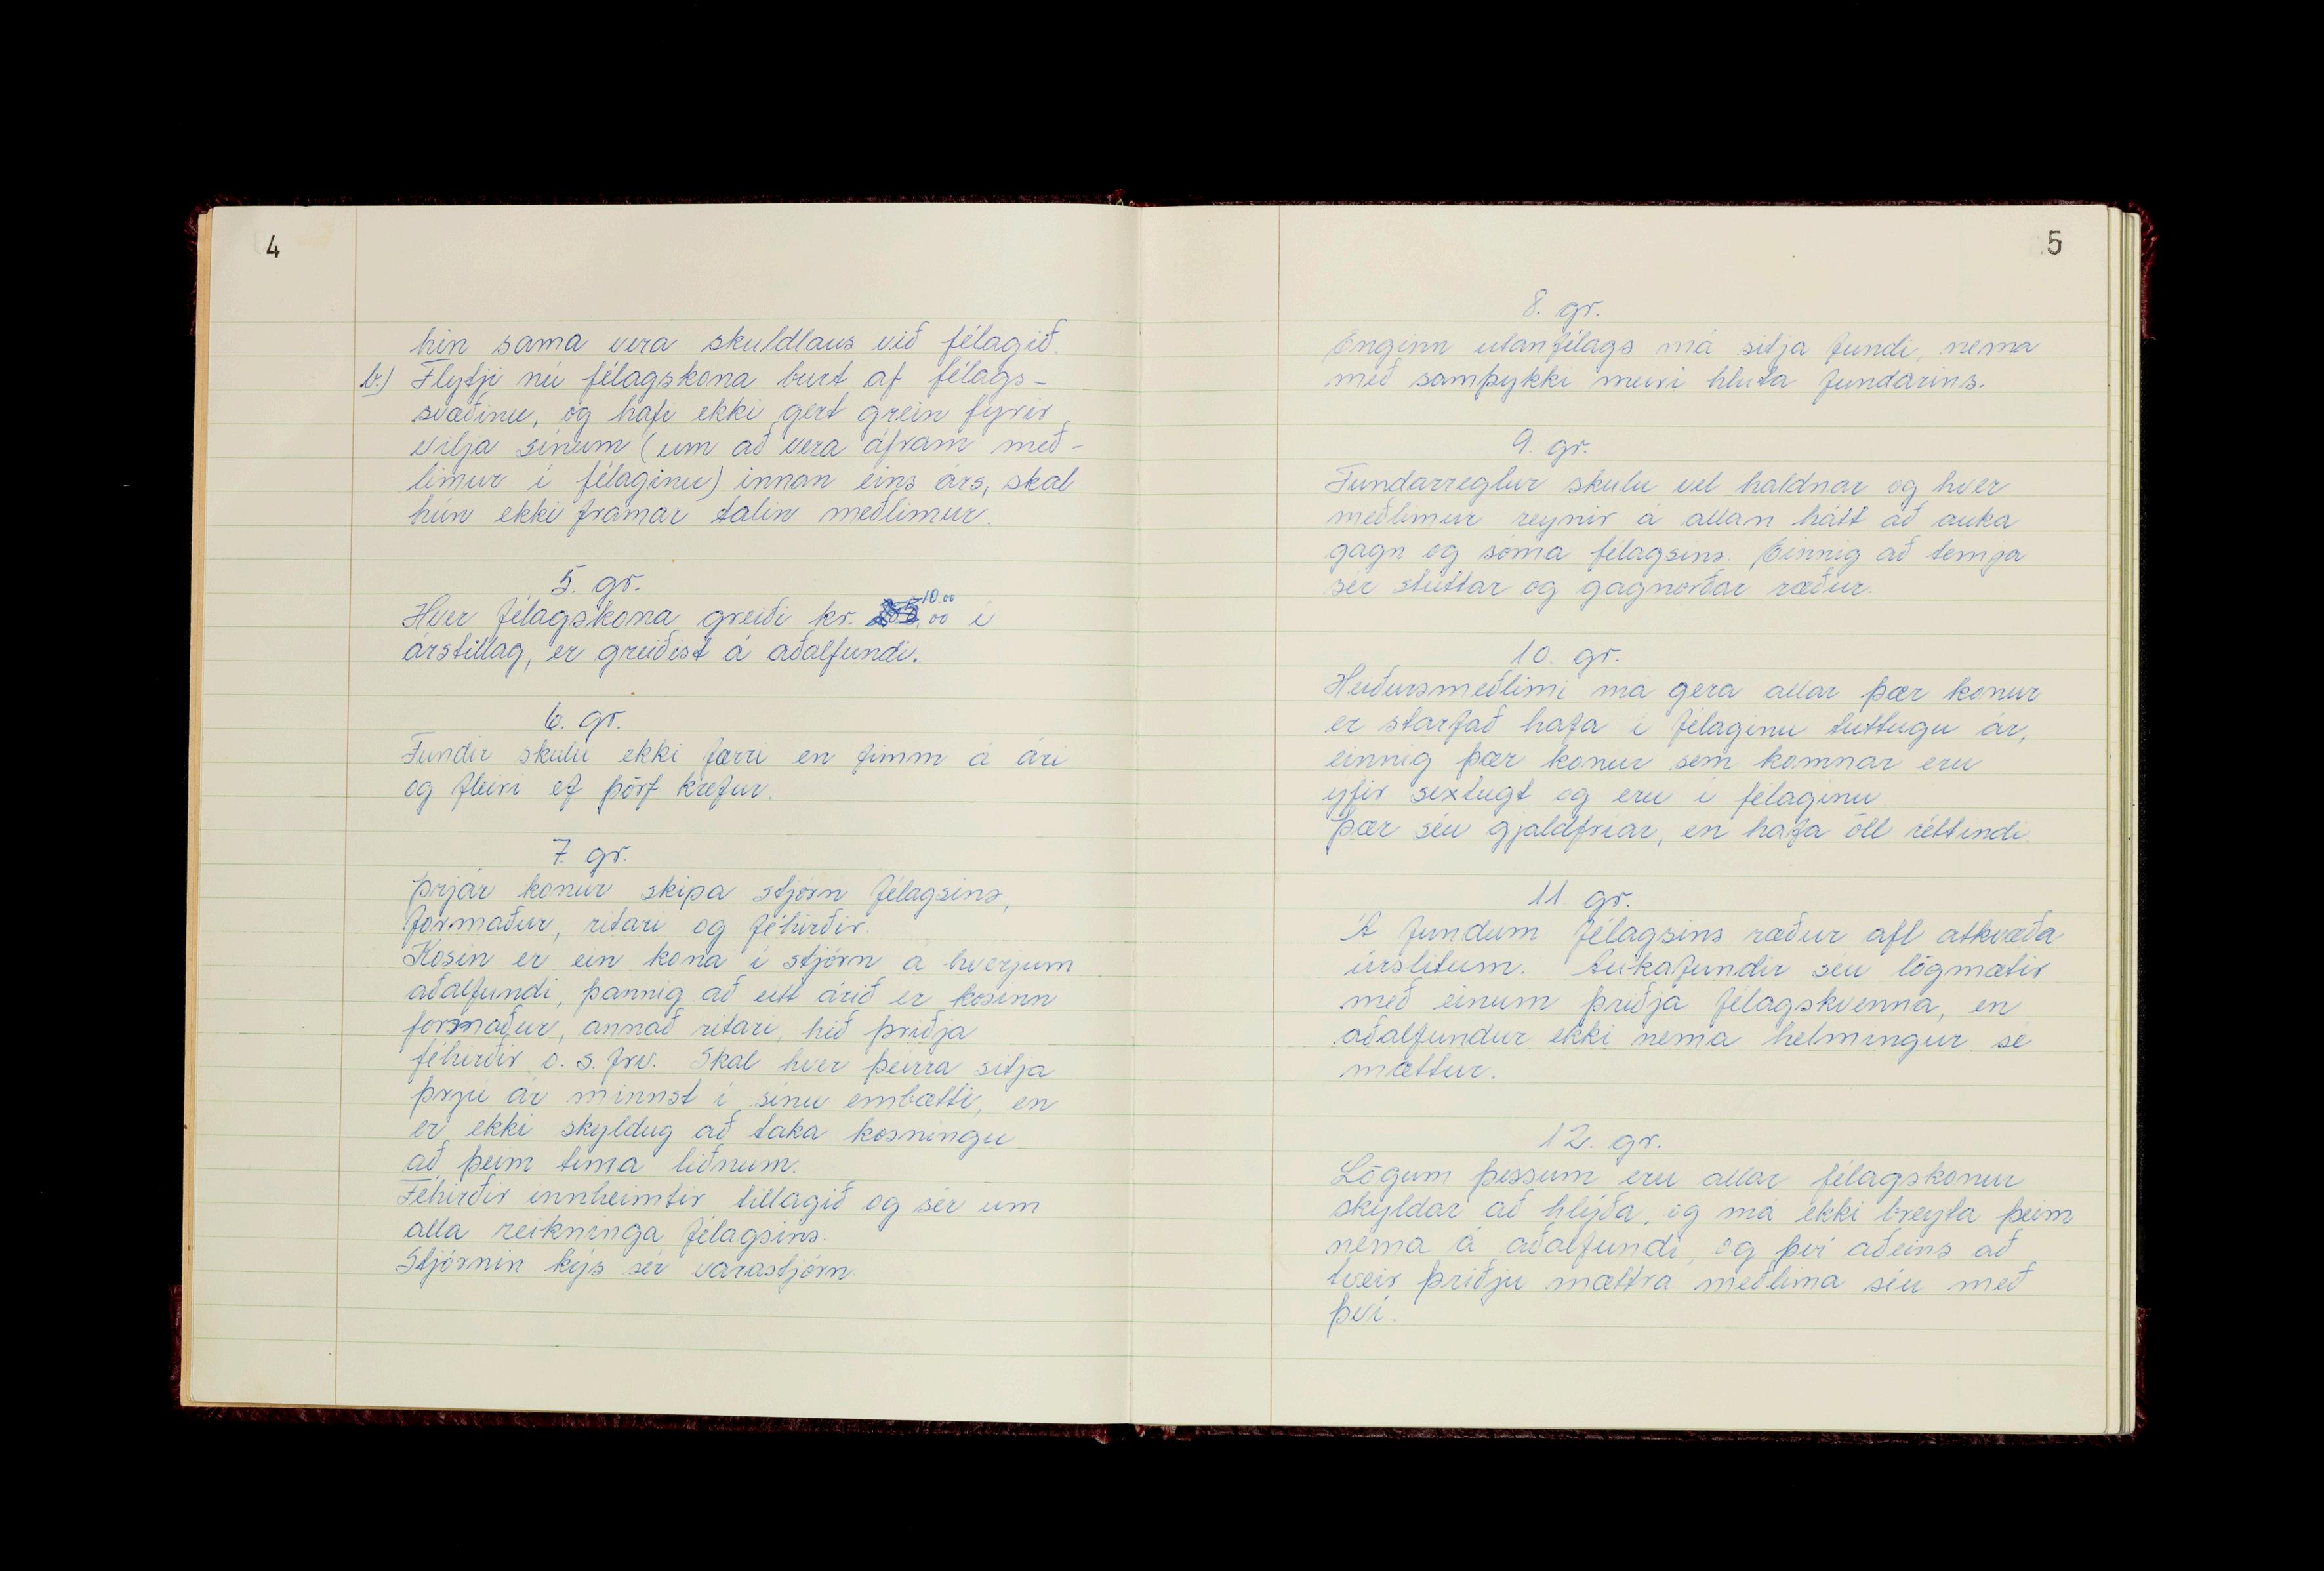 4
hin sama vera skuldlaus við félagið.
b.) Flytji nú félagskona burt af félags-
svæðinu, og hafi ekki gert grein fyrir
vilja sínum (um að vera áfram með-
limur í félaginu) innan eins árs, skal
hún ekki framar talin meðlimur.
5. gr.
Hver félagskona greiði kr. 10.00 í
árstillag, er greiðist á aðalfundi.
6. gr.
Fundir skulu ekki færri en fimm á ári
og fleiri ef þörf krefur.
7. gr.
Þrjár konur skipa stjórn félagsins,
formaður, ritari og féhirðir.
Kosin er ein kona í stjórn á hverjum
aðalfundi, þannig að eitt árið er kosinn
formaður, annað ritari, hið þriðja
féhirðir o. s. frv. Skal hver þeirra sitja
þrju ár minnst í sínu embætti, en
er ekki skyldug að taka kosningu
að þeim tíma liðnum.
Féhirðir innheimtir tillagið og sér um
alla reikninga félagsins.
Stjórnin kýs sér varastjórn.
5
8. gr.
Enginn utanfélags má sitja fundi, nema
með samþykki meiri hluta fundarins.
9. gr.
Fundarreglur skulu vel haldnar og hver
meðlimur reynir á allan hátt að auka
gagn og sóma félagsins. Einnig að temja
sér stuttar og gagnorðar ræður.
10. gr.
Heiðursmeðlimi má gera allar þær konur
er starfað hafa í félaginu tuttugu ár,
einnig þær konur sem komnar eru
yfir sextugt og eru í félaginu
Þær séu gjaldfríar, en hafa öll réttindi.
11. gr.
Á fundum félagsins ræður afl atkvæða
úrslitum. Aukafundir séu lögmætir
með einum þriðja félagskvenna, en
aðalfundur ekki nema helmingur sé
mættur.
12. gr.
Lögum þessum eru allar félagskonur
skyldar að hlýða, og má ekki breyta þeim
nema á aðalfundi, og því aðeins að
tveir þriðju mættra meðlima séu með
því.